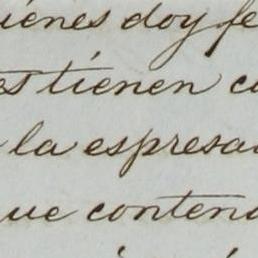 ienes doy fe
es tienen c
la espresa
ue conten